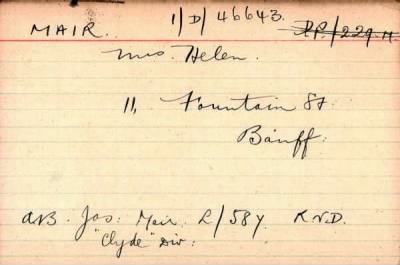 MAIR. 1/D/46643. P.P./229.M.
Mrs. Helen.
11, Fountain St
Banff.
AB. Jas: Mair L/587 R.N.D.
"Clyde" Div: